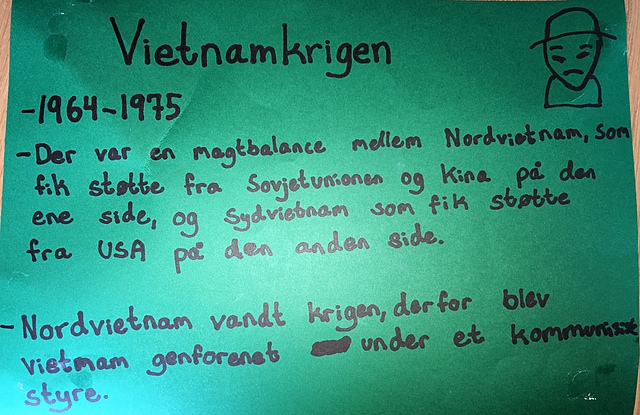 Vietnamkrigen
-1964-1975
-Der var en magtbalance mellem Nordvietnam, som
fik støtte fra Sovjetunionen og Kina på den
ene side, og Sydvietnam som fik støtte
fra USA på den anden side.
-Nordvietnam vandt krigen, derfor blev
vietnam genforenet under et kommunistisk
styre.